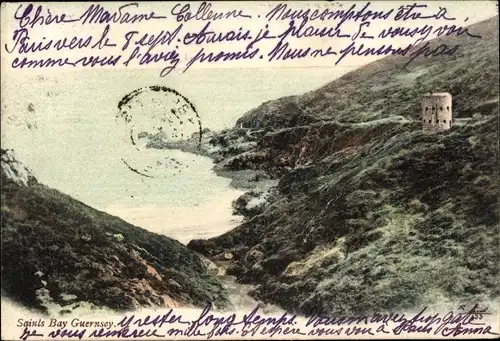 Chère Madame Collenne. Nous comptons être à
Paris vers le 8 sept. Aurais je plaisir de vous y voir
comme vous l'avez promis. Nous ne pensons pas
Saints Bay Guernsey.
y rester longtemps. Vous m'avez
de vous remercie mille fois et espère vous voir à Paris Anna